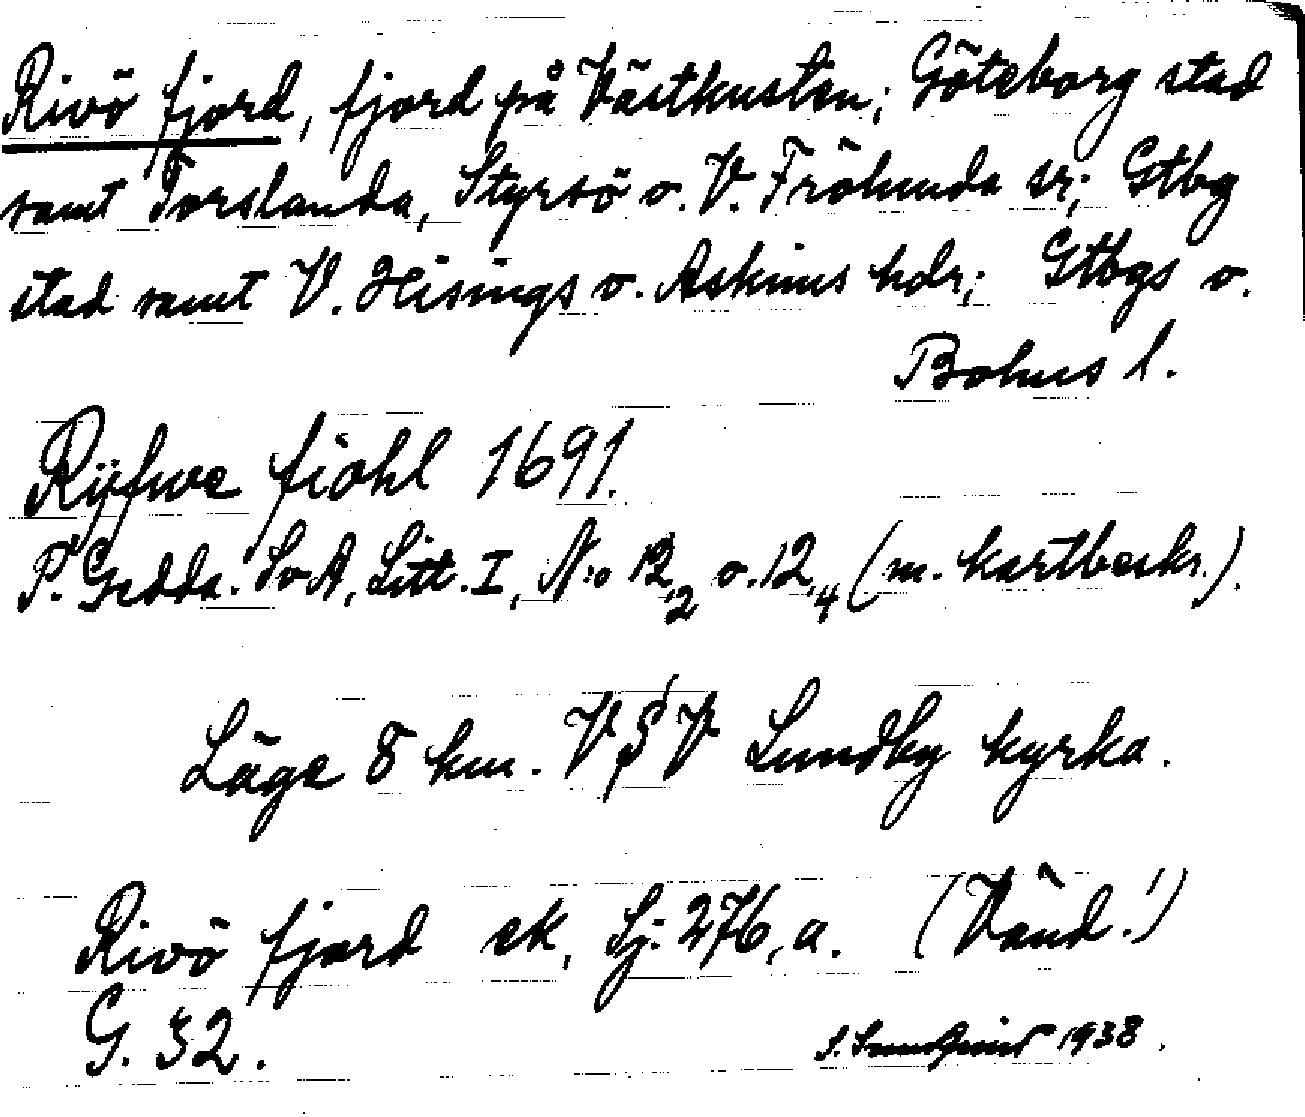 Rivö fjord, fjord på Västkusten; Göteborg stad
samt Torslanda, Styrsö o. V. Frölunda sr; Gtbg
stad samt V. Hisings o. Askims hdr; Gtbgs o.
Bohus l.
Rÿfwe fiohl 1691.
P. Gedda. SvA, Litt. I, N:o 12,2 o. 12,4 (m. kartbeskr.).
Läge 8 km. VSV Lundby kyrka.
Rivö fjord ek, Sj. 276, a. (Vänd!)
G. 32.
1938.